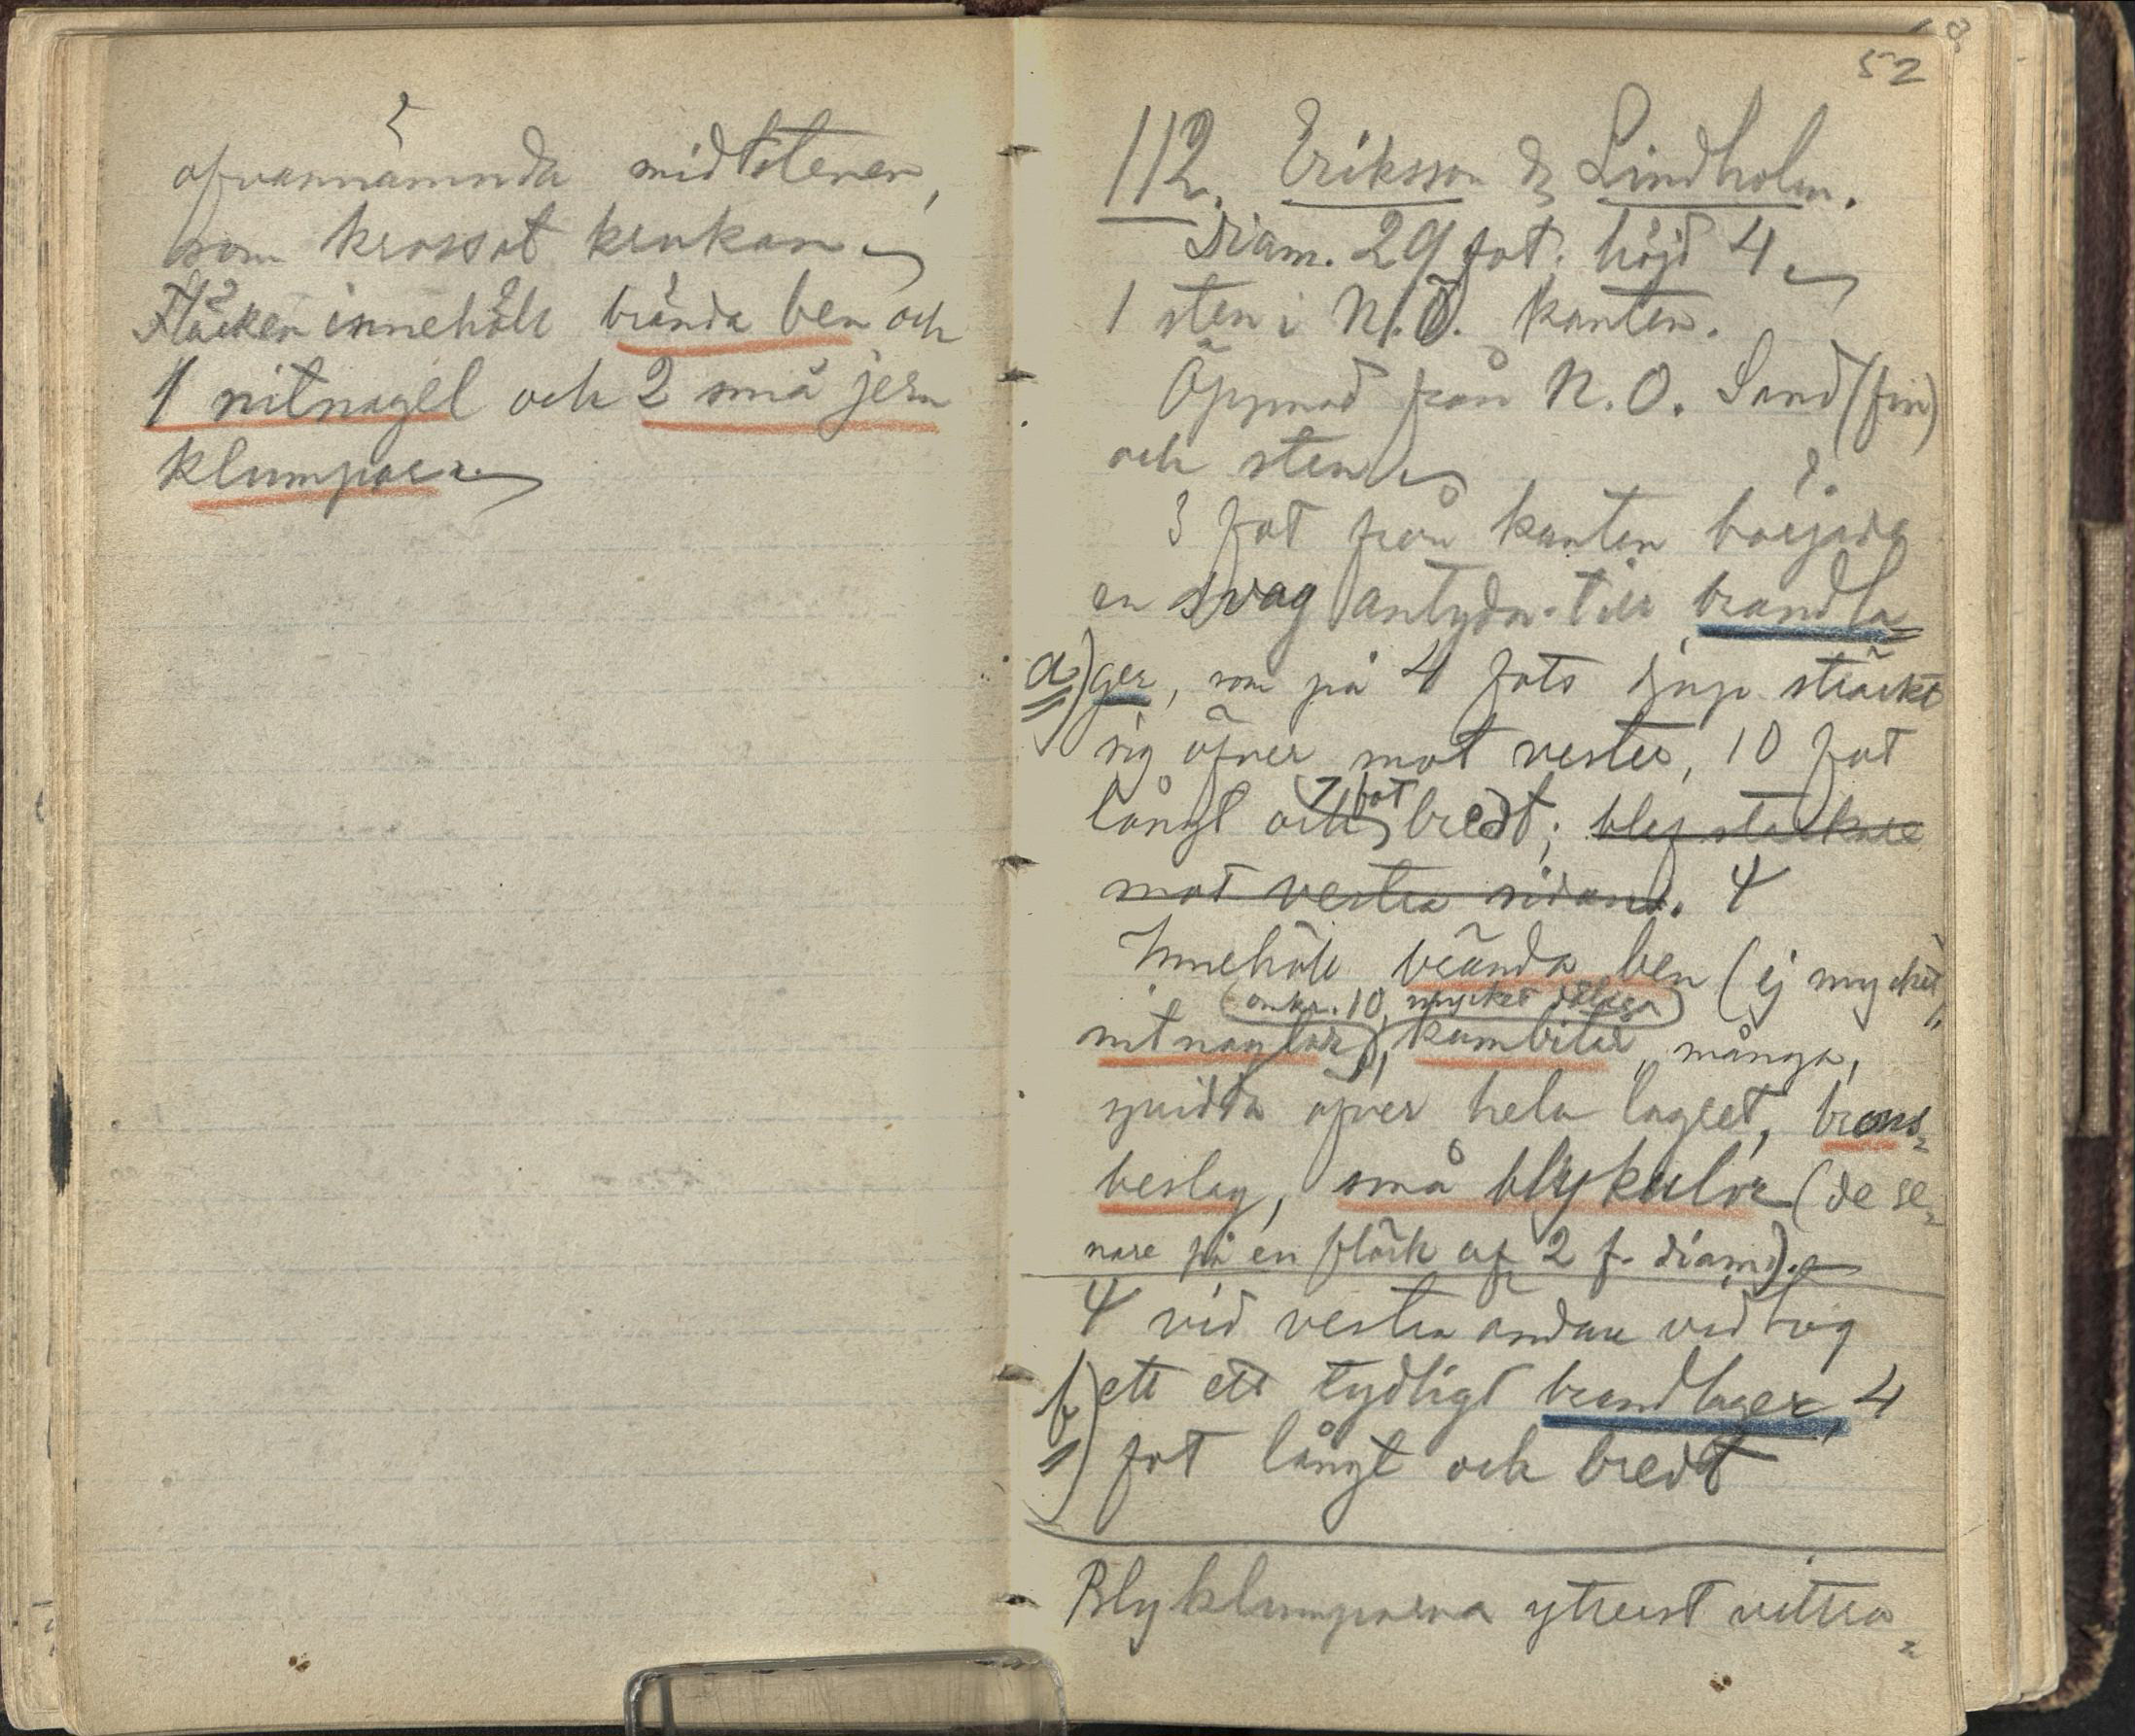 ofvannämnda midtstenen,
som krossat krukan
Fläcken innehöll brända ben och
1 nitnagel och 2 små jern
klumpar
52
112. Eriksson & Lindholm.
Diam. 29 fot. höjd 4
1 sten i N.Ö. kanten.
Öppnad från N.O. Sand (fin)
och sten
?
3 fot från kanten började
en svag antydn. till brandla
a) ger, som på 4 fots djup sträckt
sig öfver mot vester, 10 fot
7 fot
långt och bredt; blef starkare
mot vestra sidan. 4
Innehöll brända ben (ej mycket),
omkr. 10, mycket dåliga
nitnaglar), kambitar, många,
spridda öfver hela lagret, brons-
beslag, små blykulor (de se-
nare på en fläck af 2 f. diam).
4 vid vestra ändan vidtog
b) ett ett tydligt brandlager, 4
fot långt och bredt
Blyklumparna ytterst vittra-